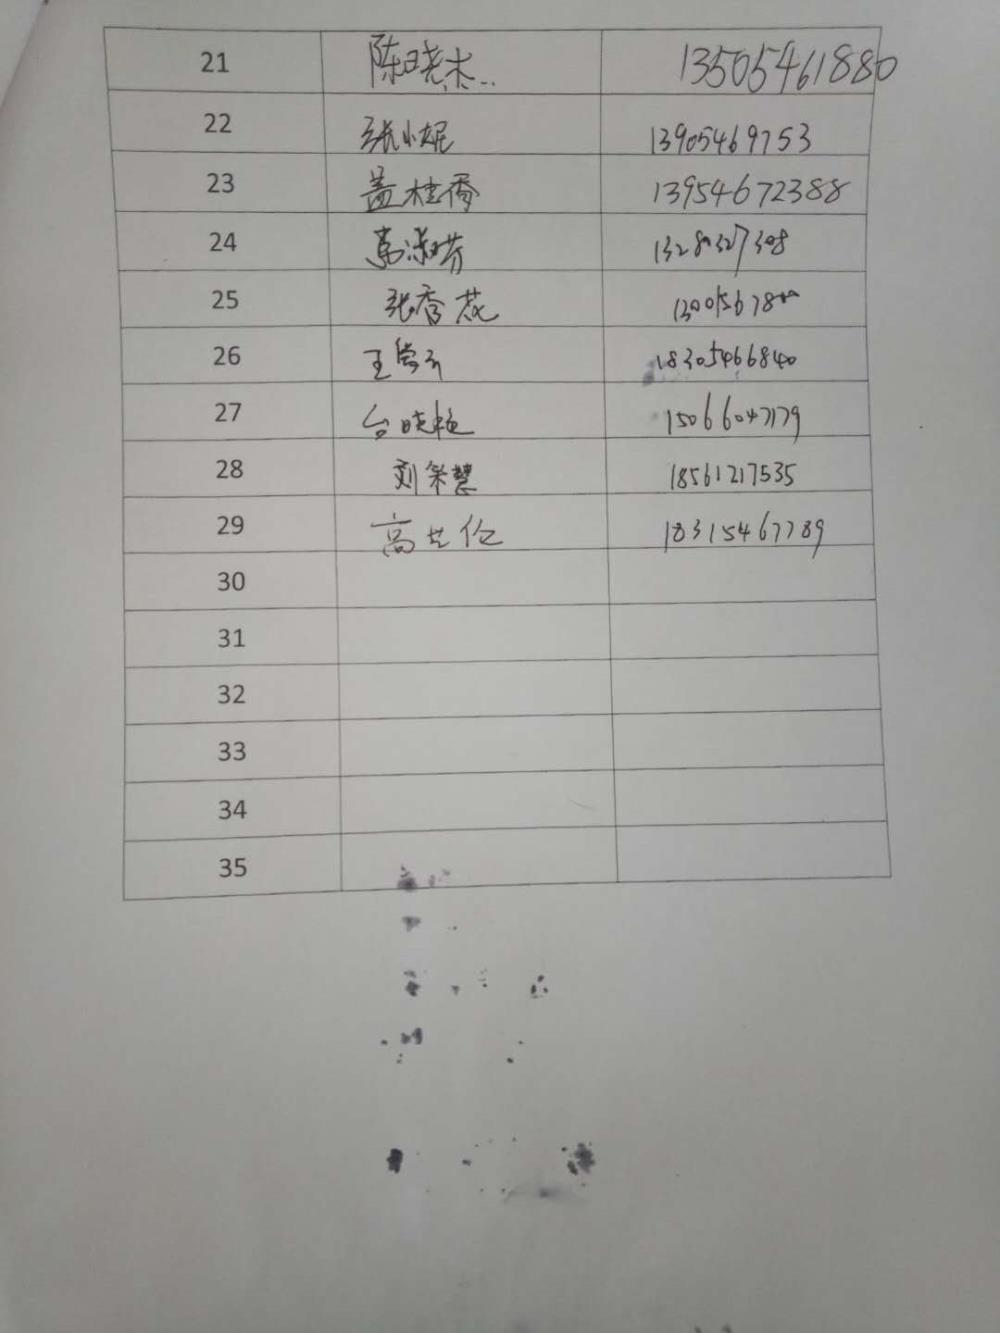 21 陈晓杰 13505461880
22 张小妮 13905469753
23 盖桂香 13954672388
24 13280327308
25 张香花
26 王 18305466840
27 台晓艳 15066047179
28 刘 慧 18561217535
29 高 18315467789
30
31
32
33
34
35